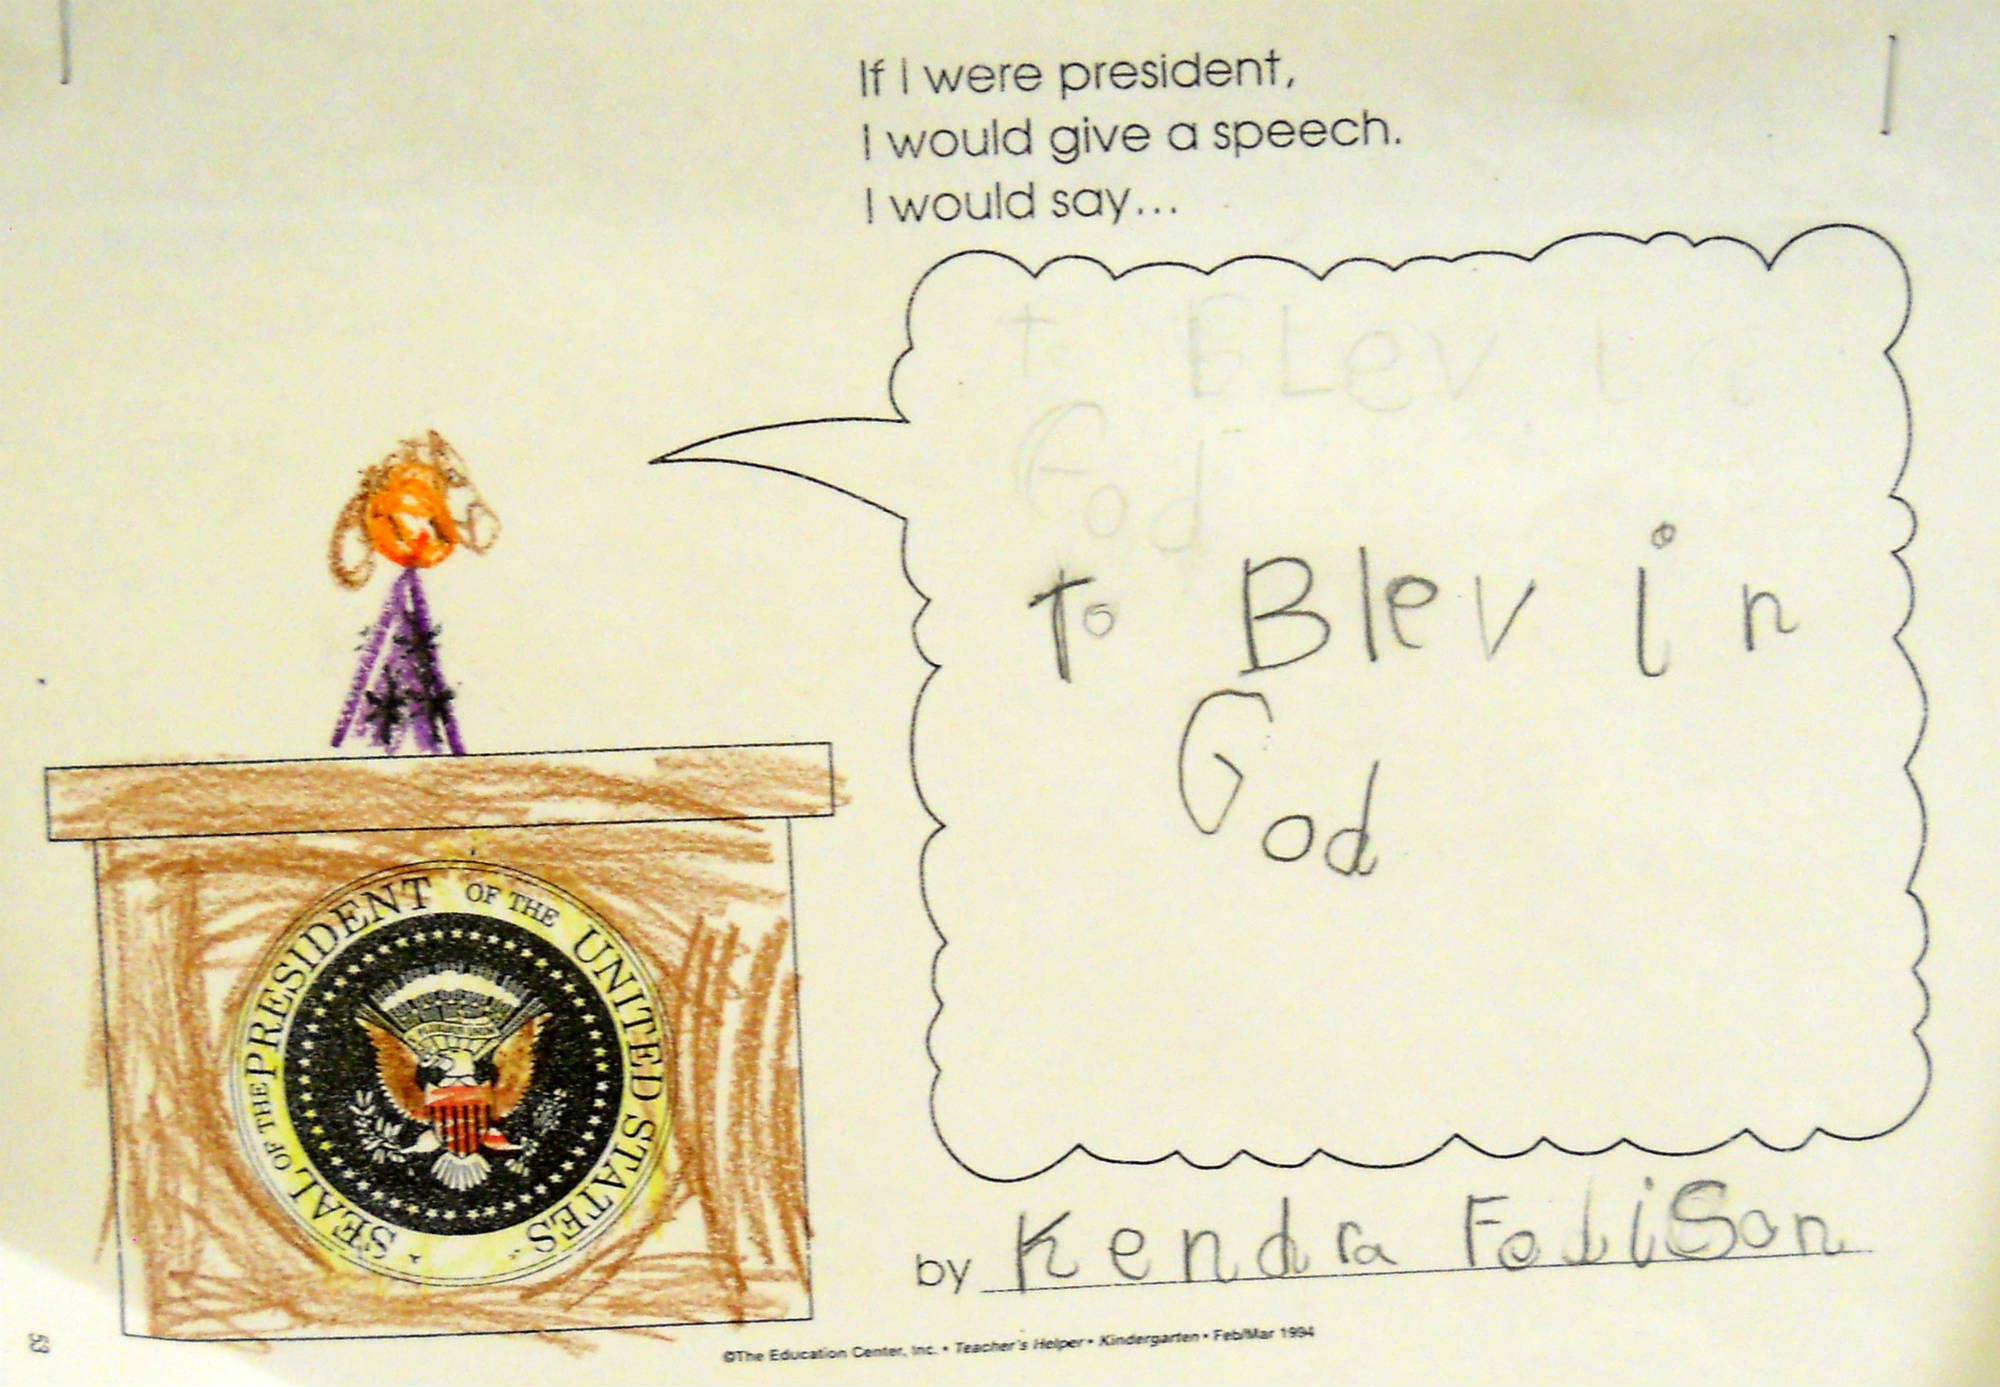 If I were president,
I would give a speech.
I would say...
to BLev in
God
to Blev in
God
SEAL OF THE PRESIDENT OF THE UNITED STATES
by Kendra FediSon
©The Education Center, Inc. • Teacher's Helper • Kindergarten • Feb/Mar 1994
53